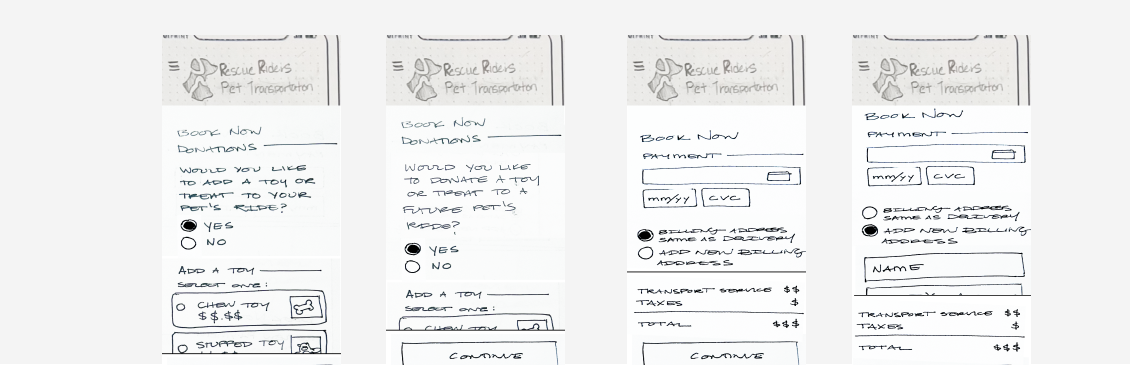 Rescue Riders
Pet Transportation
BOOK NOW
DONATIONS
WOULD YOU LIKE
TO ADD A TOY OR
TREAT TO YOUR
PET'S RIDE?
YES
NO
ADD A TOY
SELECT ONE:
CHEW TOY
$$.$$
STUFFED TOY
Rescue Riders
Pet Transportation
BOOK NOW
DONATIONS
WOULD YOU LIKE
TO DONATE A TOY
OR TREAT TO A
FUTURE PET'S
RIDE?
YES
NO
ADD A TOY
SELECT ONE:
CHEW TOY
CONTINUE
Rescue Riders
Pet Transportation
BOOK NOW
PAYMENT
mm/yy CVC
BILLING ADDRESS
SAME AS DELIVERY
ADD NEW BILLING
ADDRESS
TRANSPORT SERVICE $$
TAXES $
TOTAL $$$
CONTINUE
Rescue Riders
Pet Transportation
BOOK NOW
PAYMENT
mm/yy CVC
BILLING ADDRESS
SAME AS DELIVERY
ADD NEW BILLING
ADDRESS
NAME
TRANSPORT SERVICE $$
TAXES $
TOTAL $$$